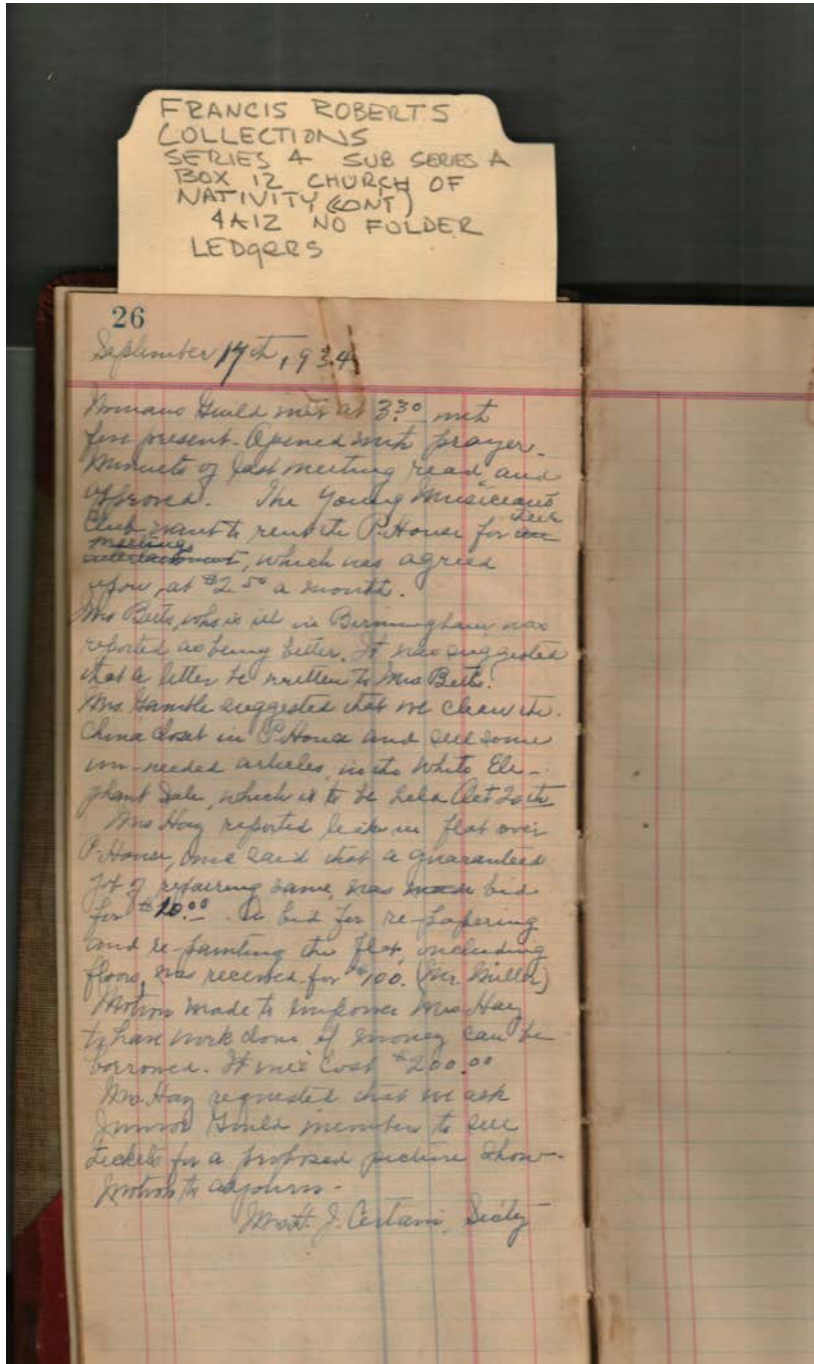 FRANCIS ROBERTS
COLLECTIONS
SERIES 4 SUB SERIES A
BOX 12 CHURCH OF
NATIVITY (CONT)
4A12 NO FOLDER
LEDGERS
26
September 17th, 1934
Womans Guild met at 3:30 with
few present. Opened with prayer.
Minuets of last meeting read and
approved. The Young Musiceans
Club want to rent the P. House for their
meeting, which was agreed
upon, at $2.50 a month.
Mrs Betts, who is ill in Birmingham, was
reported as being better. It was suggested
that a letter be written to Mrs Betts.
Mrs. Gamble suggested that we clean the
China closet in P. House and sell some
un-needed articles, in the White Ele-
phant Sale, which is to be held Oct 20th
Mrs Hay reported leak in flat over
P. House, and said that a guaranteed
job of repairing same, was bid
for $20.00. A bid for re-papering
and re-painting the flat, including
floors, was received for $100. (Mr. Miller)
Motion made to empower Mrs Hay
to have work done if money can be
borrowed. It will cost $200.00
Mrs. Hay requested that we ask
Junior Guild members to sell
tickets for a proposed picture show-
Motion to adjourn-
J. Secty